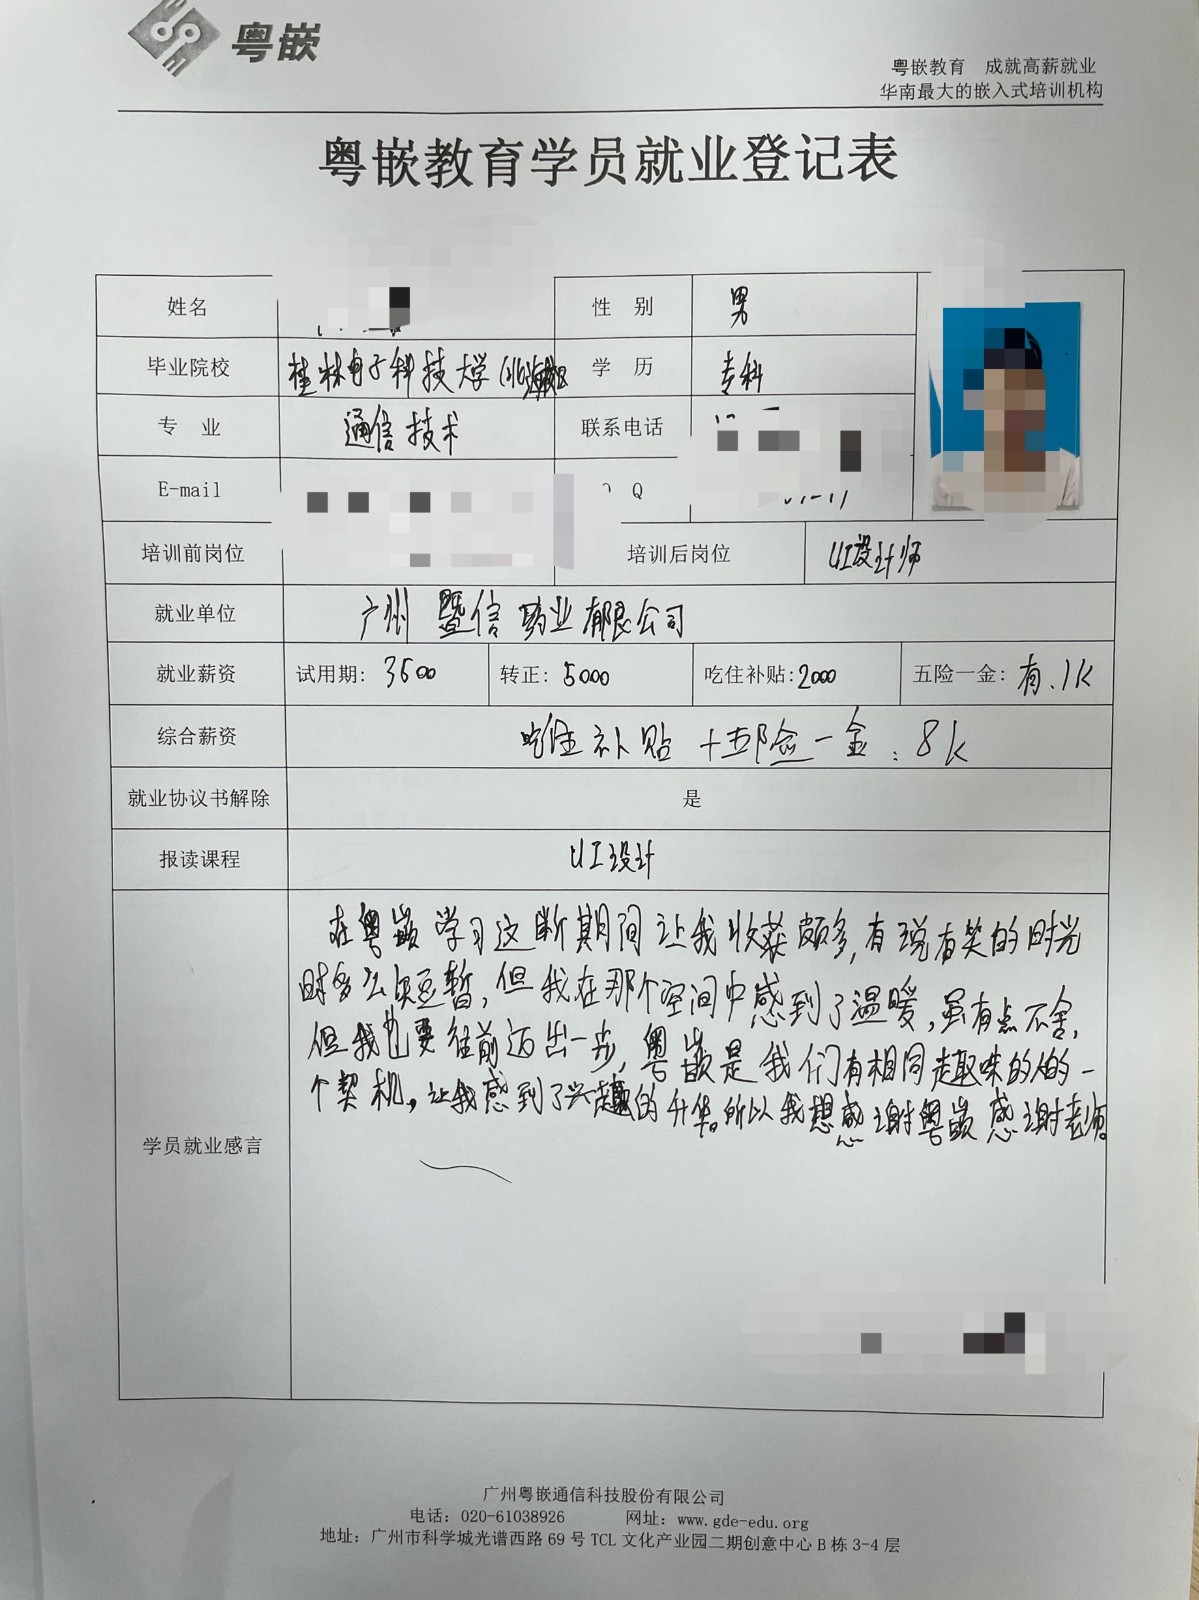 粤嵌
粤嵌教育 成就高薪就业
华南最大的嵌入式培训机构
粤嵌教育学员就业登记表
姓名 性 别 男
毕业院校 桂林电子科技大学(北海校区 学 历 专科
专 业 通信技术 联系电话
E-mail Q
培训前岗位 培训后岗位 UI设计师
就业单位 广州暨信药业有限公司
就业薪资 试用期: 3500 转正: 5000 吃住补贴:2000 五险一金: 有、1K
综合薪资 吃住补贴+五险一金:8k
就业协议书解除 是
报读课程 UI设计
在粤嵌学习这断期间让我收获颇多,有说有笑的时光
时多么短暂,但我在那个空间中感到了温暖,虽有点不舍,
但我也要往前迈出一步,粤嵌是我们有相同趣味的人的一
个契机,让我感到了兴趣的升华。所以我想感谢粤嵌感谢老师。
学员就业感言
广州粤嵌通信科技股份有限公司
电话: 020-61038926 网址: www.gde-edu.org
地址: 广州市科学城光谱西路 69 号 TCL 文化产业园二期创意中心 B 栋 3-4 层